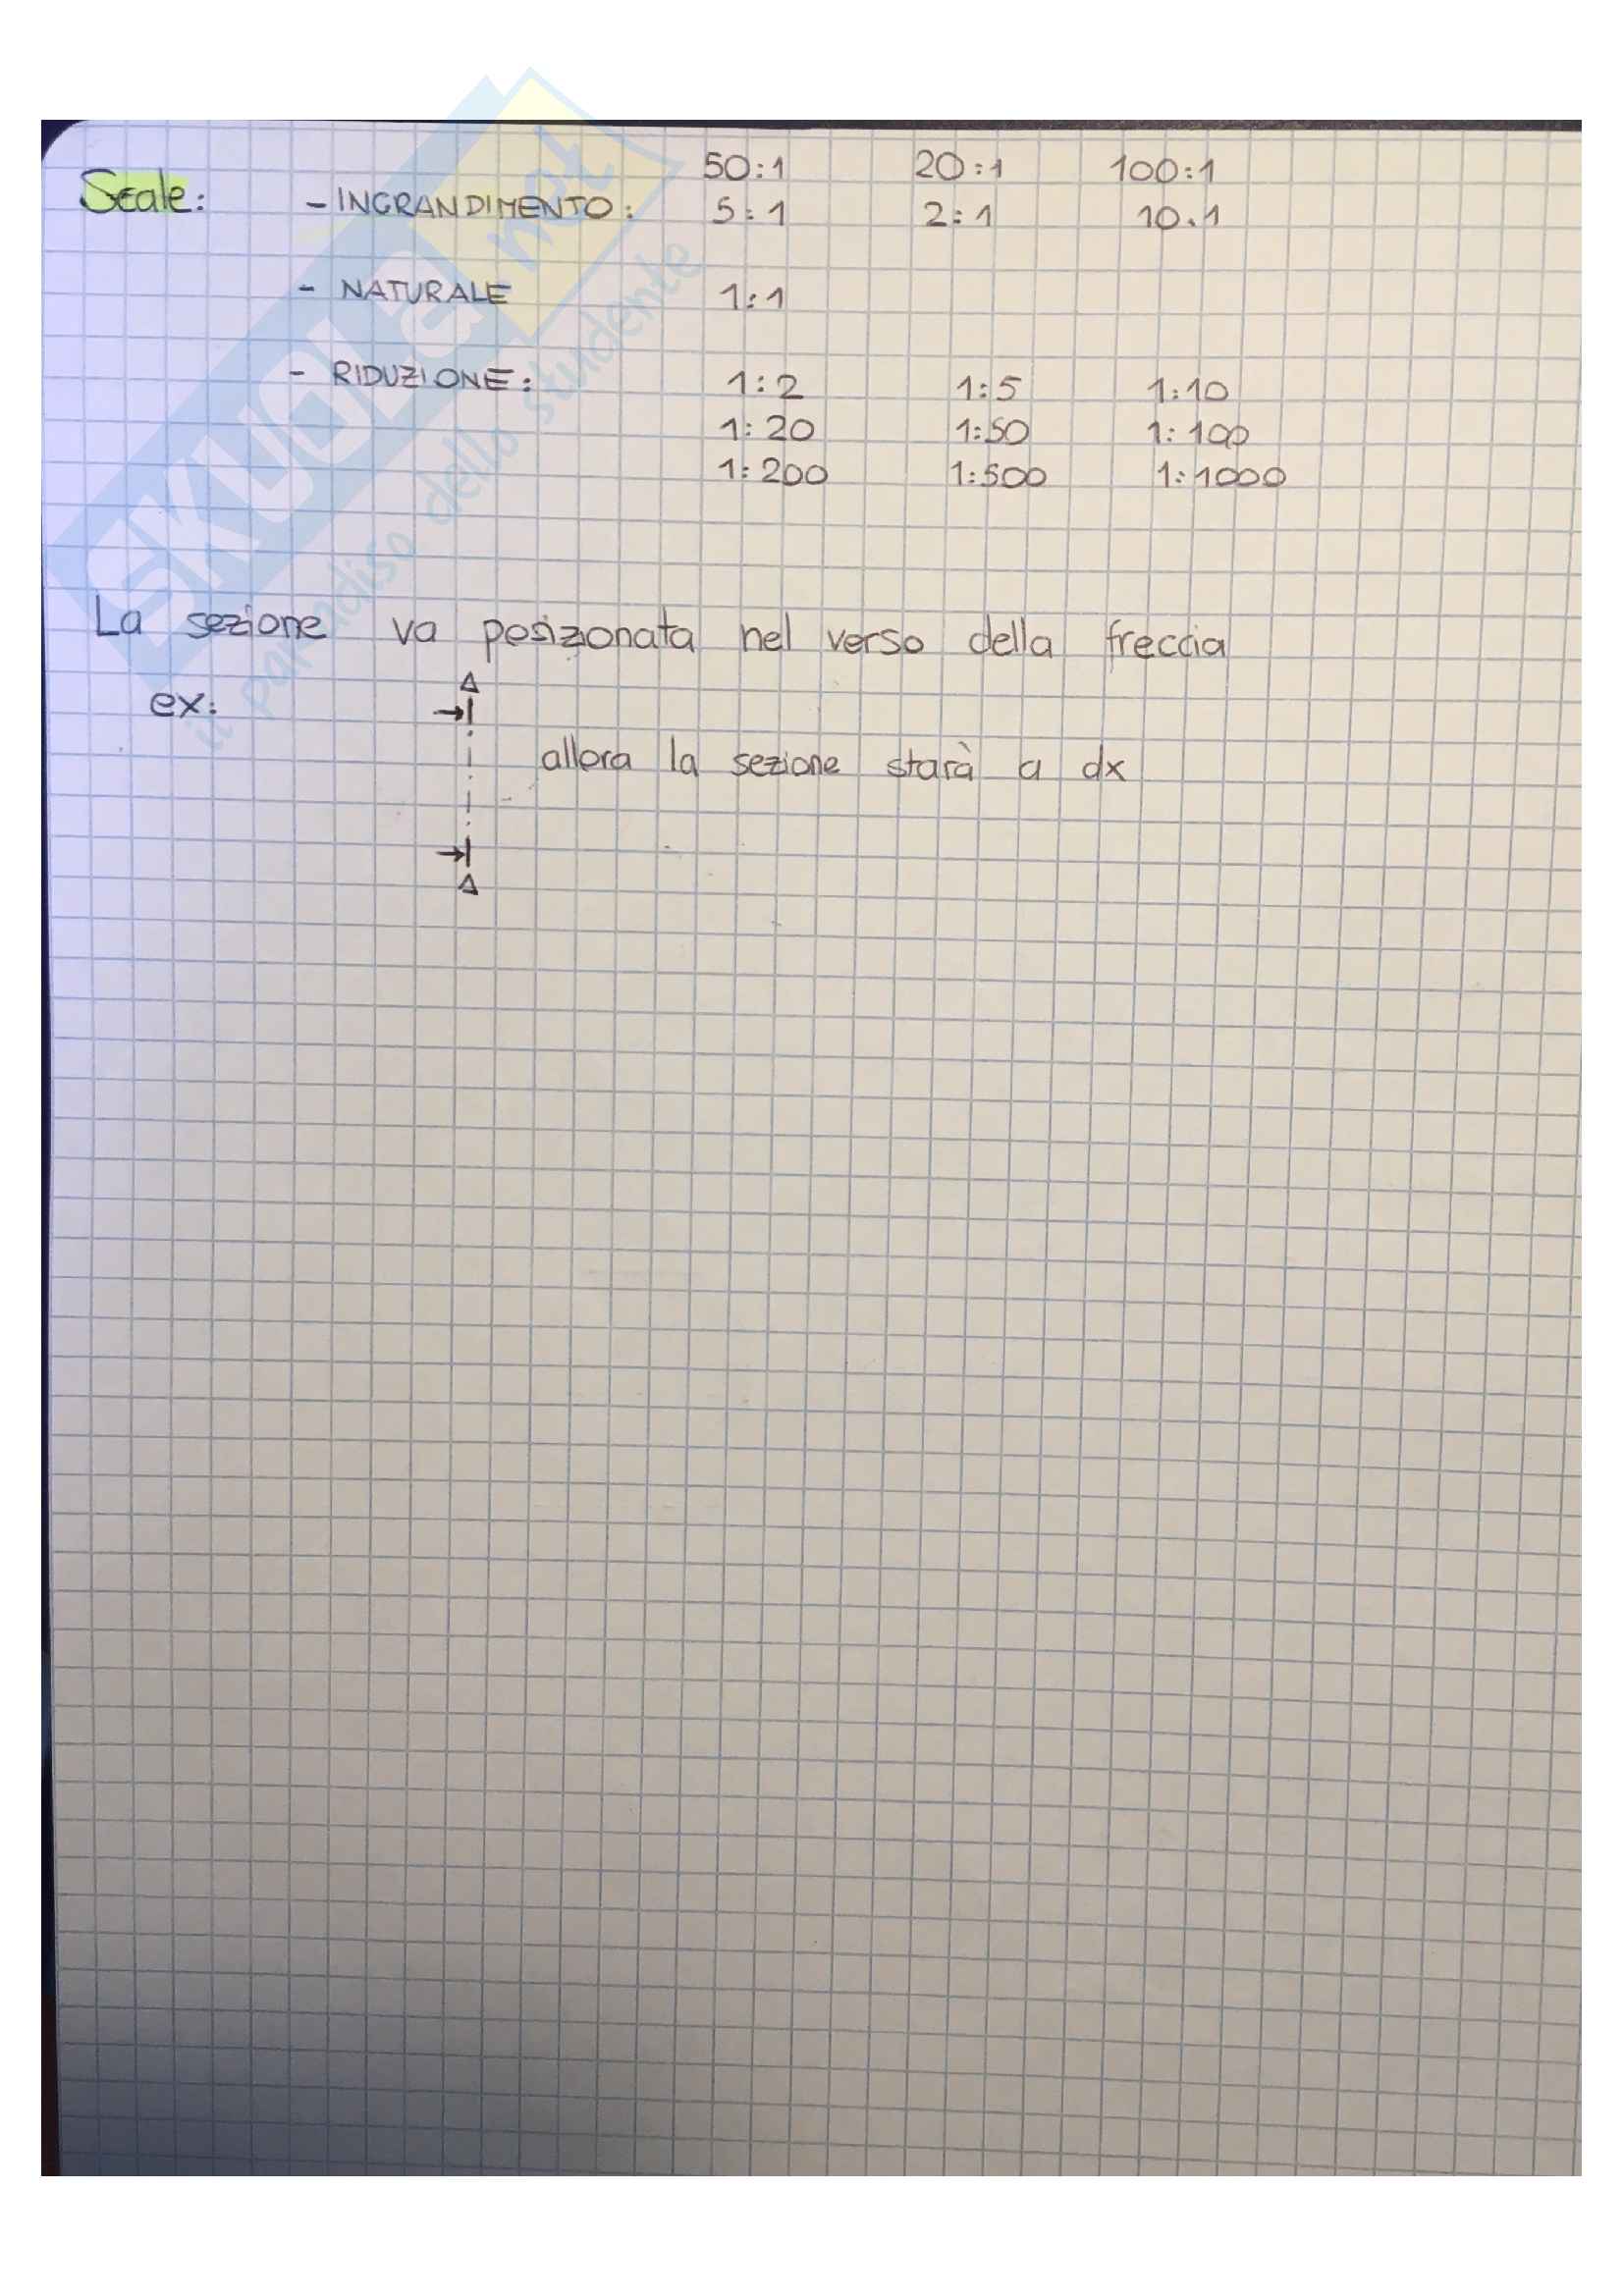 50:1 20:1 100:1
Scale: - INGRANDIMENTO: 5:1 2:1 10.1
- NATURALE 1:1
- RIDUZIONE: 1:2 1:5 1:10
1:20 1:50 1:100
1:200 1:500 1:1000
La sezione va posizonata nel verso della freccia
ex:
A
allora la sezione starà a dx
A
SKUOLA.net
il paradiso dello studente